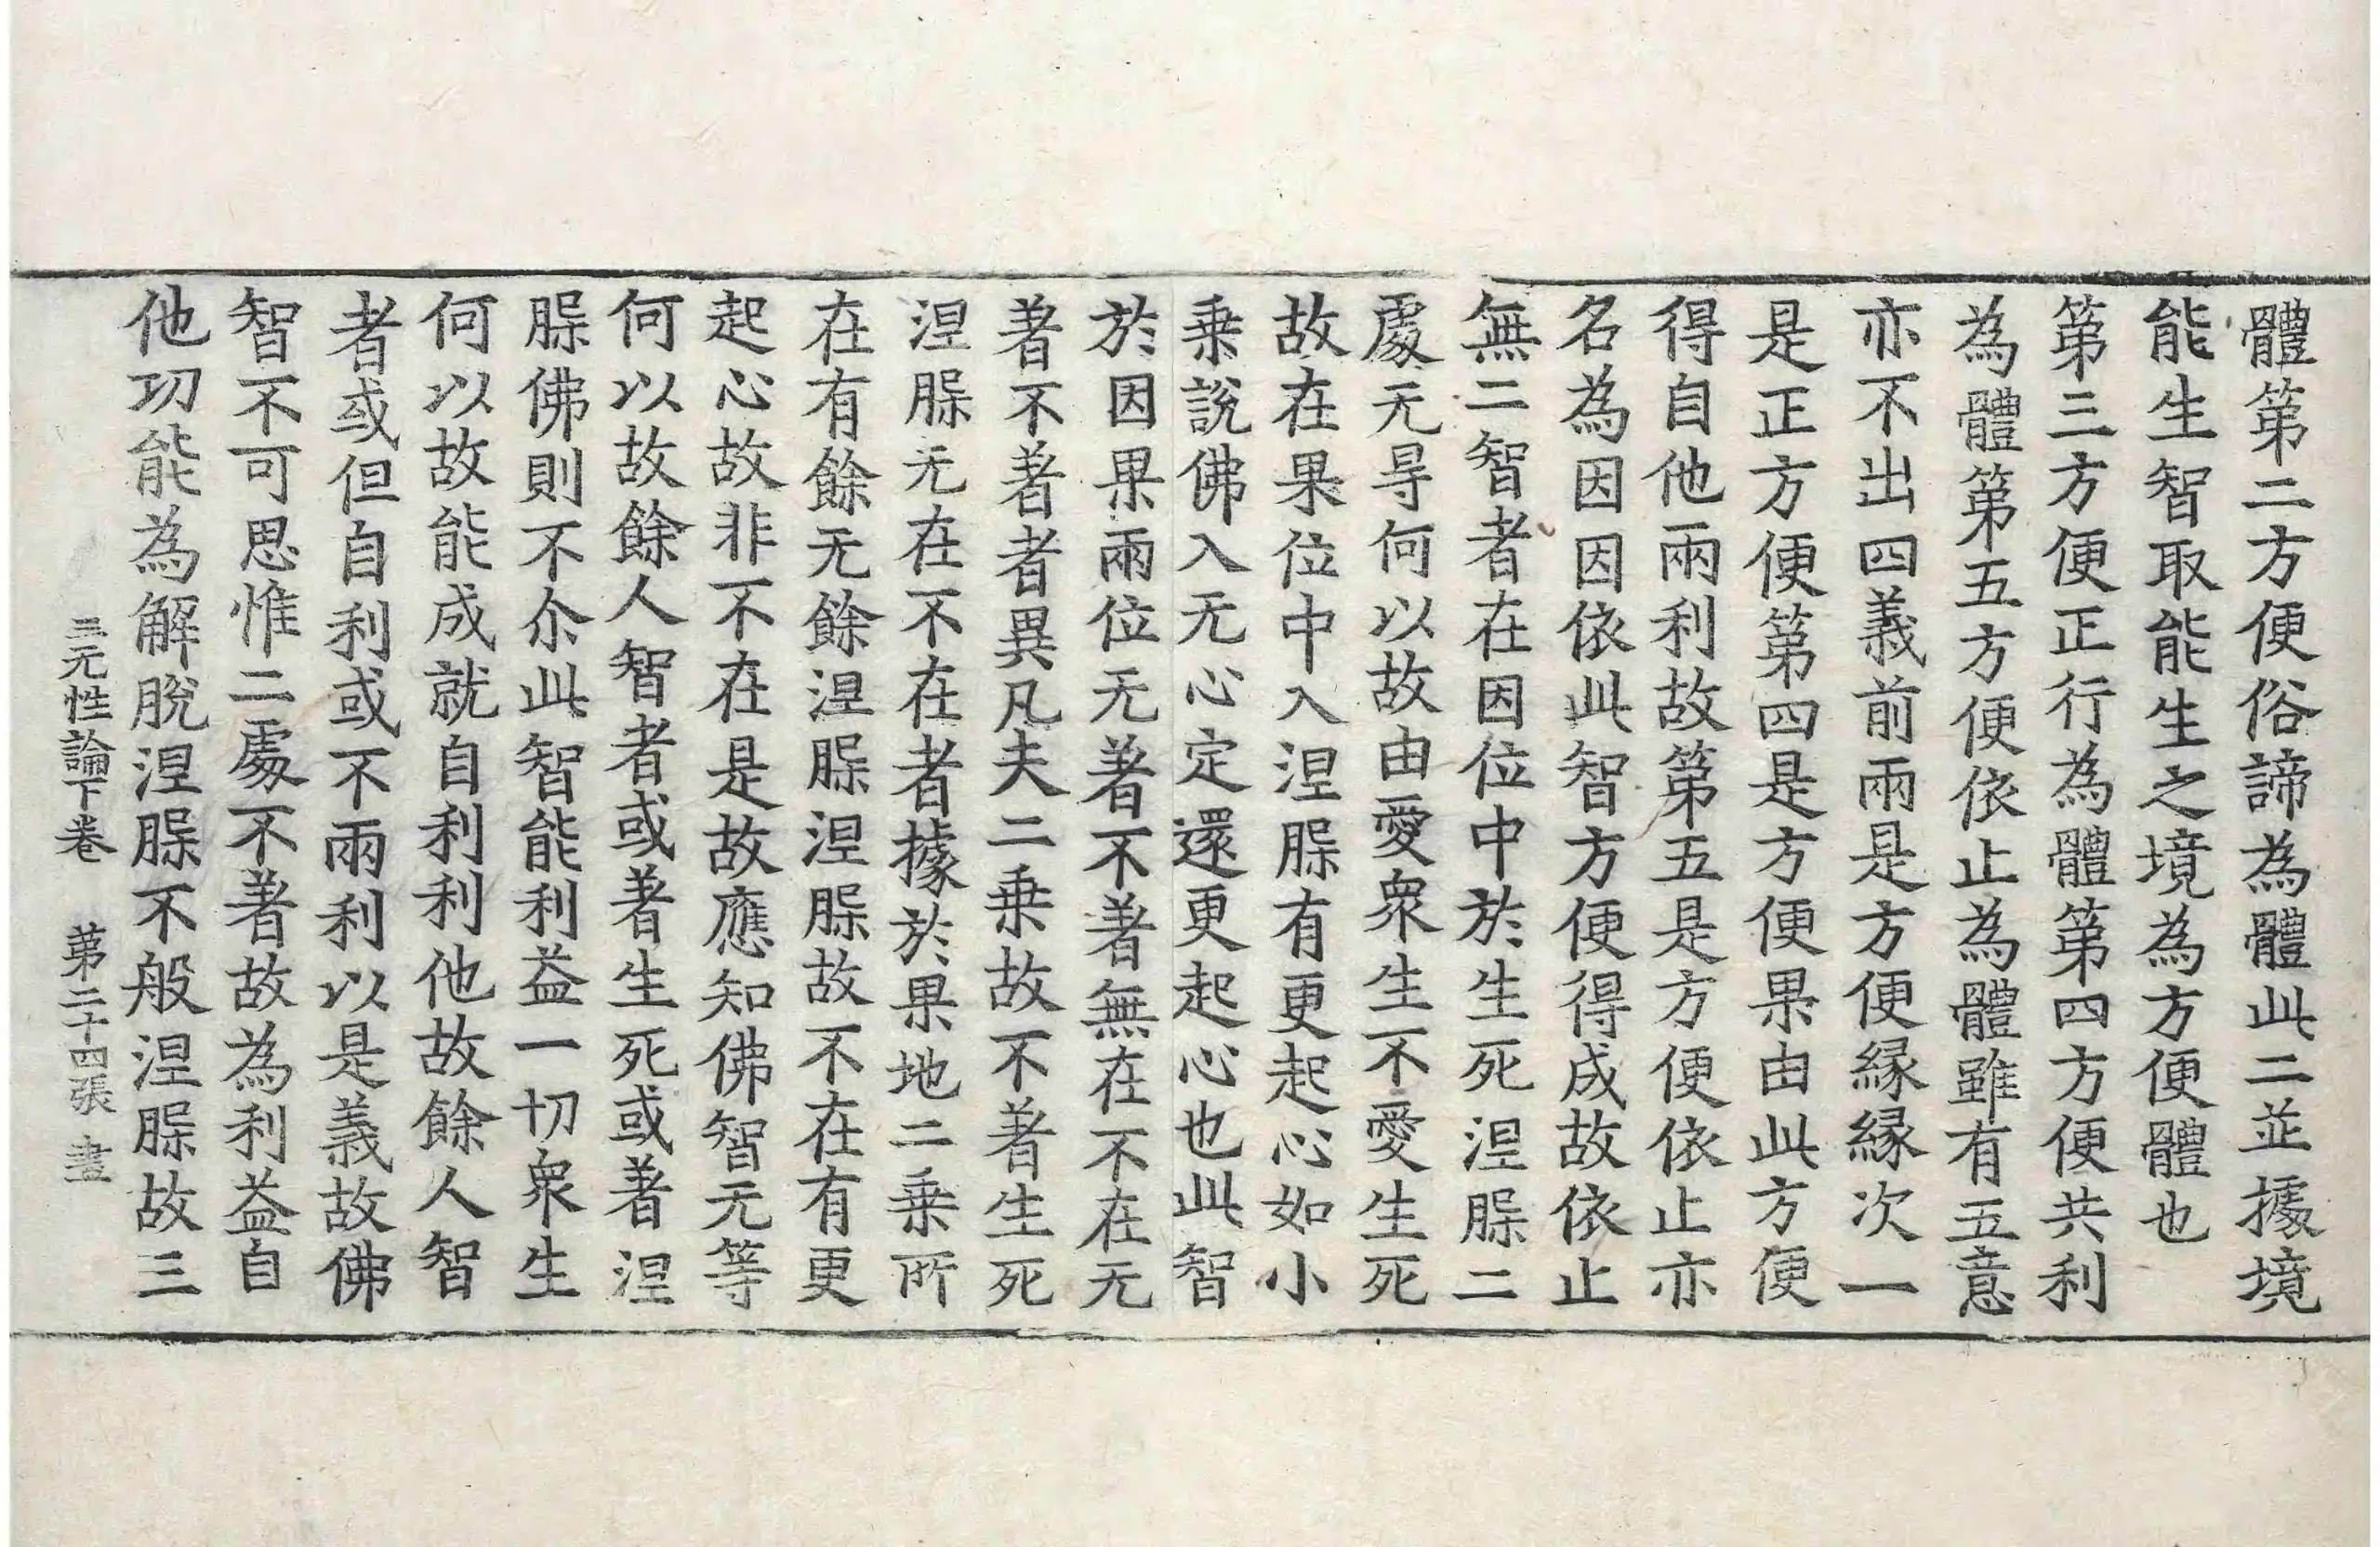 體第二方便俗諦為體此二並據境
能生智取能生之境為方便體也
第三方便正行為體第四方便共利
為體第五方便依止為體雖有五意
亦不出四義前兩是方便縁縁次一
是正方便第四是方便果由此方便
得自他兩利故第五是方便依止亦
名為因因依此智方便得成故依止
無二智者在因位中於生死涅䏶二
處无㝵何以故由愛衆生不愛生死
故在果位中入涅䏶有更起心如小
乗說佛入无心定還更起心也此智
於因果兩位无著不著無在不在无
著不著者異凡夫二乗故不著生死
涅䏶无在不在者據於果地二乗所
在有餘无餘涅䏶涅䏶故不在有更
起心故非不在是故應知佛智无等
何以故餘人智者或著生死或著涅
䏶佛則不尒此智能利益一切衆生
何以故能成就自利利他故餘人智
者或但自利或不兩利以是義故佛
智不可思惟二處不著故為利益自
他功能為解脫涅䏶不般涅䏶故三
三无性論下卷 第二十四張 晝